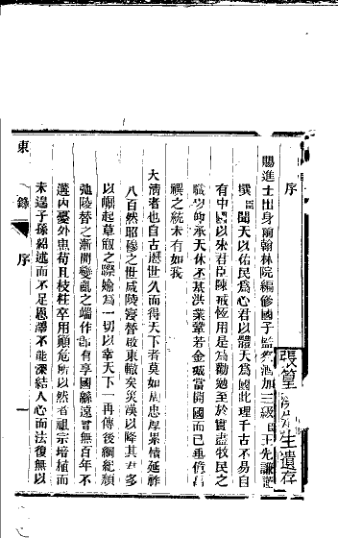 序
賜進士出身前翰林院編修國子監祭酒加三級臣王先謙謹
撰臣聞天以佑民為心君以體天為國此理千古不易自
有中國以來君臣陳戒恆用是為勸勉至於實盡牧民之
職以承天休丕基洪業鞏若金甌當開國而已
禩之統未有如我
大清者也自古歷世久而得天下者莫如周忠厚累積延祚
八百然昭穆之世威陵寖啟東轍矣災漢以降其君多
以崛起草澱之為一切以幸天下一再傳後綱紀頹
弛陵替之漸間變亂之端作有享國緜遠曾無百年不
遘內憂外患苟且枝柱卒用顛危所以然者祖宗培植而
未遑子孫紹述而不足恩澤不能深結人心而法復無以
東 錄 序 一
張篁 先生遺存